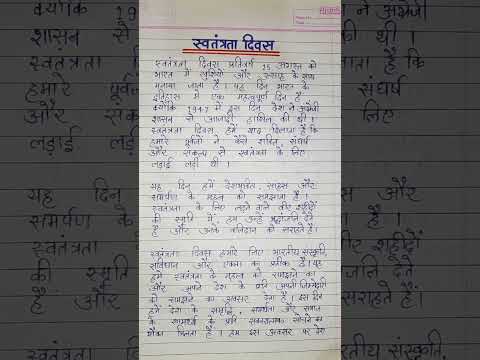 स्वतंत्रता दिवस
स्वतंत्रता दिवस प्रतिवर्ष 15 अगस्त को
भारत में खुशियों और उत्साह के साथ
मनाया जाता है। यह दिन भारत के
इतिहास में एक महत्वपूर्ण दिन है
क्योंकि 1947 में इस दिन देश ने अंग्रेजी
शासन से आजादी हासिल की थी।
स्वतंत्रता दिवस हमें याद दिलाता है कि
हमारे पूर्वजों ने कैसे शक्ति, संघर्ष
और संकल्प से स्वतंत्रता के लिए
लड़ाई लड़ी थी।
यह दिन हमें देशभक्ति, साहस और
समर्पण के महत्व को समझाता है।
स्वतंत्रता के लिए लड़ने वाले वीर शहीदों
की स्मृति में, हम उन्हें श्रद्धांजलि देते
हैं और उनके बलिदान को सराहते हैं।
स्वतंत्रता दिवस हमारे लिए भारतीय संस्कृति,
संविधान और एकता का प्रतीक है। यह
हमें स्वतंत्रता के महत्व को समझने का
और अपने देश के प्रति अपनी जिम्मेदारी
को समझने का अवसर देता है। इस दिन
हमें देश की समृद्धि, समर्थता और समाज
के सामर्थ्य के प्रति सकारात्मक सोचने का
मौका मिलता है। हम इस अवसर पर देश